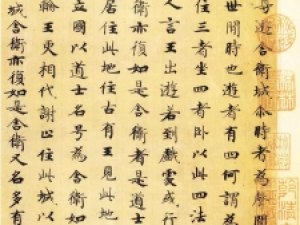 遊舍衛城尒時者為聲聞
世間時也遊者有四何謂為
住三者坐四者卧以此四法
人言王出遊若到戲處或行
衛亦復如是舍衛者是道士
居住此地往古有王見此地
立國以道士名号為舍衛如
輪王更相代謝止住此城以
城舍衛亦復如是舍衛又名多有